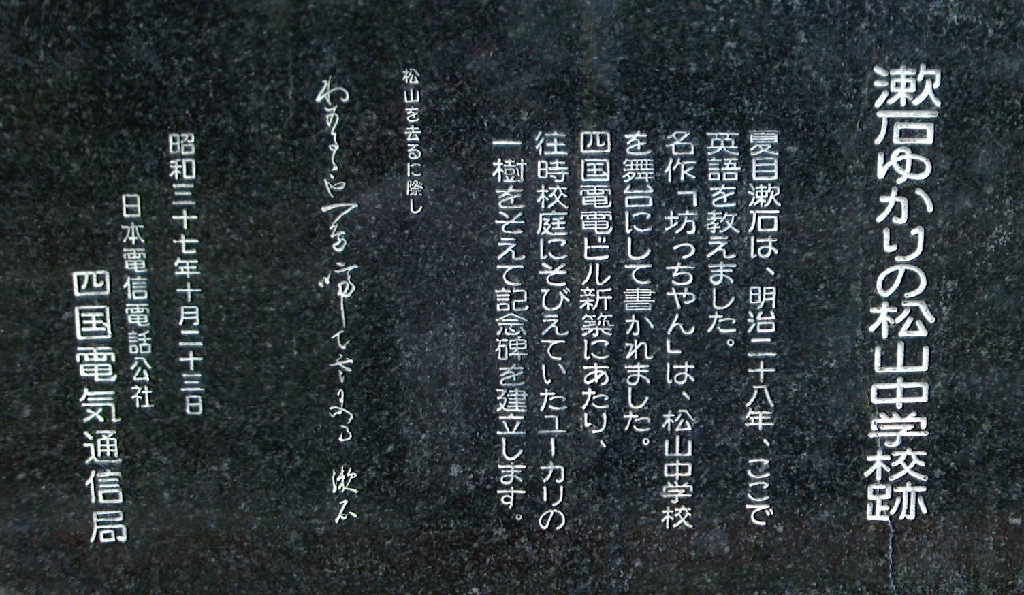 漱石ゆかりの松山中学校跡
夏目漱石は、明治二十八年、ここで
英語を教えました。
名作「坊っちやん」は、松山中学校
を舞台にして書かれました。
四国電電ビル新築にあたり、
往時校庭にそびえていたユーカリの
一樹をそえて記念碑を建立します。
松山を去るに際し
わかるゝや一鳥啼て雲に入る 漱石
昭和三十七年十月二十三日
日本電信電話公社
四国電気通信局